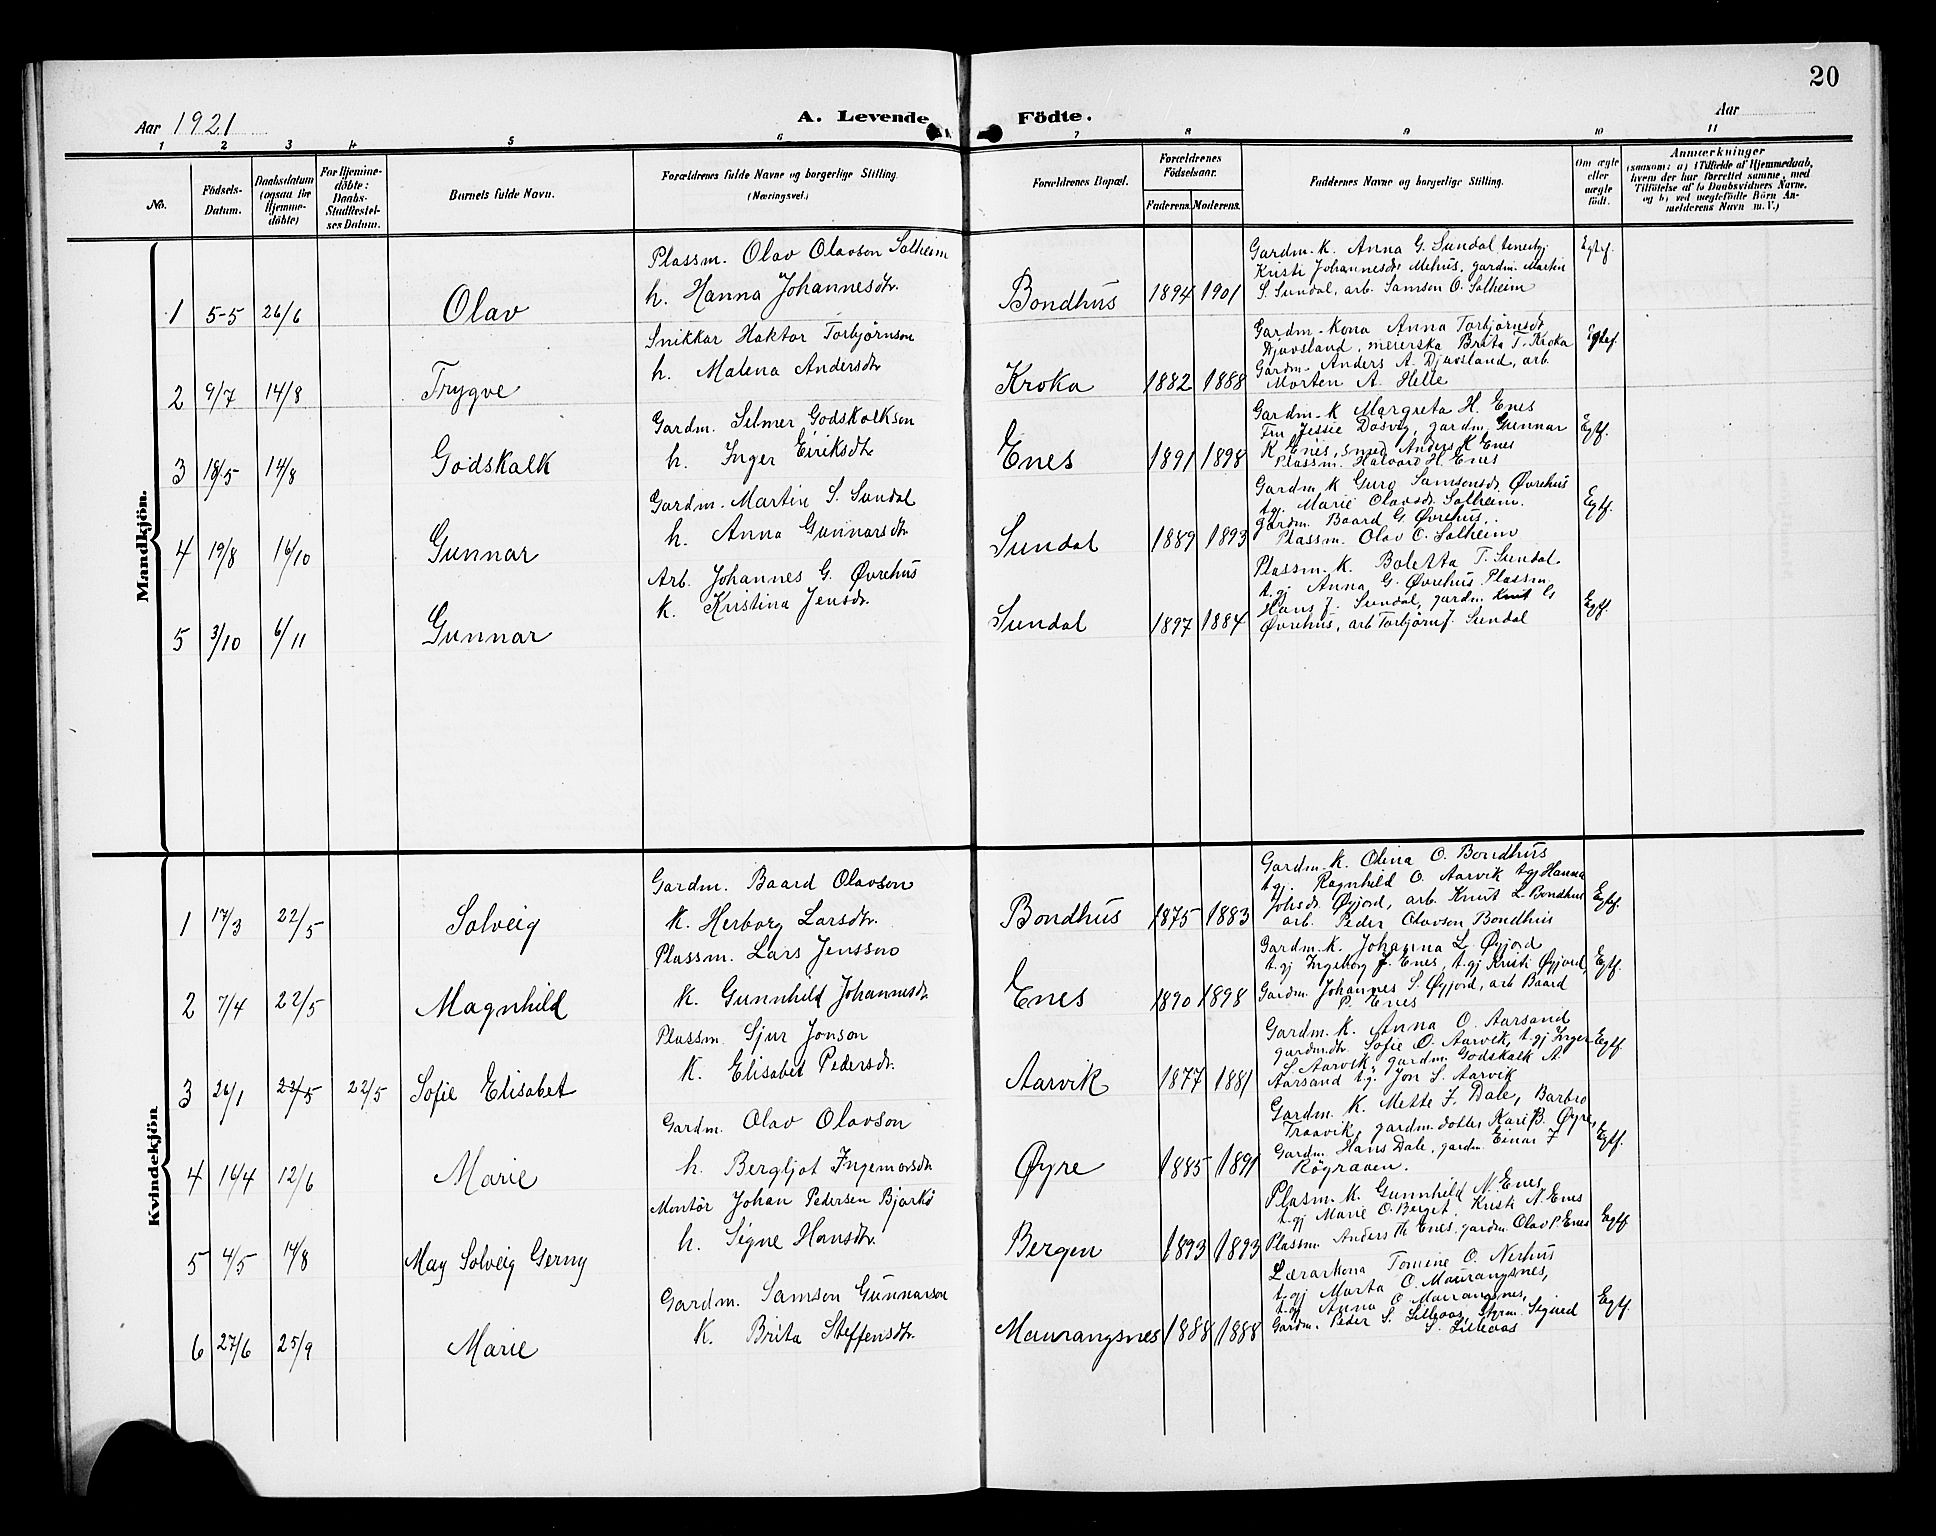 20
Aar 1921
A. Levende Födte.
Aar
1 2 3 4 5 6 7 8 9 10 11
No.
Födsels-Datum.
Daabsdatum (ogsaa for Hjemmedöbte)
For Hjemmedöbte: Daabs-Stadfæstelses Datum.
Barnets fulde Navn.
Forældrenes fulde Navne og borgerlige Stilling. (Næringsvei.)
Forældrenes Bopæl.
Forældrenes Födselsaar.
Faderens. Moderens.
Faddernes Navne og borgerlige Stilling.
Om ægte eller uægte födt.
Anmærkninger
(saasom: a) i Tilfælde af Hjemmedaab, hvem der har forrettet samme, med Tilföielse af to Daabsvidners Navne, og b) ved uægtefödte Börn Anmelderens Navn m. V.)
Mandkjön.
1 5-5 26/6 Olav
Plassm. Olav Olavson Solheim
h. Hanna Johannesdtr.
Bondhus 1894 1901
Gardm. K. Anna G. Sundal tenestgj.
Kristi Johannesdtr Mehus, gardm. Martin
S. Sundal, arb. Samson O. Solheim
Egtf.
2 9/7 14/8 Trygve
Snikkar Haktor Torbjørnson
h. Malena Andersdtr
Kroka 1882 1888
Gardm. Kona Anna Torbjørnsdt
Djuvsland, meierska Brita T. Kroka
Gardm. Anders A. Djuvsland, arb.
Morten A. Helle
Egtef.
3 18/5 14/8 Godskalk
Gardm. Selmer Godskalkson
h. Inger Eiriksdtr
Enes 1891 1898
Gardm. K Margreta H. Enes
Fru Jessie Dosvig, gardm. Gunnar
K. Enes, smed Anders K Enes
Plassm. Halvard H. Enes
Egtf.
4 19/8 16/10 Gunnar
Gardm. Martin S. Sundal
h. Anna Gunnarsdtr
Sundal 1889 1893
Gardm. K Guro Samsonsdr. Øvrehus
t.g. Marie Olavsdr. Solheim.
gardm. Baard G. Øvrehus.
Plassm. Olav O. Solheim
Egtf.
5 3/10 6/11 Gunnar
Arb. Johannes G. Øvrehus
K. Kristina Jensdr.
Sundal 1897 1884
Plassm. K. Boletta T. Sundal
t.gj Anna G. Øvrehus. Plassm.
Hans J. Sundal, gardm. Knut G
Øvrehus, arb Torbjørn J. Sundal
Egtf.
Kvindekjön.
1 17/3 22/5 Solveig
Gardm. Baard Olavson
K. Herborg Larsdtr.
Bondhus 1875 1883
Gardm. K. Olina O. Bondhus
t.gj. Ragnhild O. Aarvik tgj Hanna
Johsdr. Øyjord, arb. Knut L. Bondhus
arb. Peder Olavson Bondhus
Egtf.
2 7/4 22/5 Magnhild
Plassm. Lars Jensson
K. Gunnhild Johannesdr
Enes 1890 1898
Gardm. K. Johanna L. Øyjord
t.gj Ingeborg J. Enes, t.gj Kristi Øyjord,
Gardm. Johannes S. Øyjord, arb Baard
P. Enes
Egtf.
3 26/1 22/5 22/5 Sofie Elisabet
Plassm. Sjur Jonson
K. Elisabet Pedersdr.
Aarvik 1877 1881
Gardm. K. Anna O. Aarsand
gardmdtr. Sofie O. Aarvik, t.gj Inger
S. Aarvik, gardm. Godskalk A
Aarsand t.g. Jon S. Aarvik
Egtf
4 16/4 12/6 Marie
Gardm. Olav Olavson
h. Bergljot Ingemarsdtr
Øyre 1885 1891
Gardm. K. Mette J. Dale, Barbro
Traavik, gardm. dotter Kari B. Øyre,
Gardm. Hans Dale, gardm. Einar J
Røgraaen.
Egtf.
5 4/5 14/8 May Solveig Gerny
Montør Johan Pedersen Bjarkø
h. Signe Hansdtr.
Bergen 1893 1893
Plasm. K. Gunnhild N. Enes
t.gj Marie O. Berget. Kristi N. Enes
Plassm. Anders Th Enes, gardm. Olav P. Enes
Egtf
6 27/6 25/9 Marie
Gardm. Samson Gunnarson
K. Brita Steffensdtr.
Maurangsnes 1888 1888
Lærarkona Tomine O. Nerhus
t.gj Marta O. Maurangsnes,
t.gj Anna O Maurangsnes,
Gardm. Peder S. Lilleaas, Styrm. Sigurd
S. Lilleaas
Egtf.